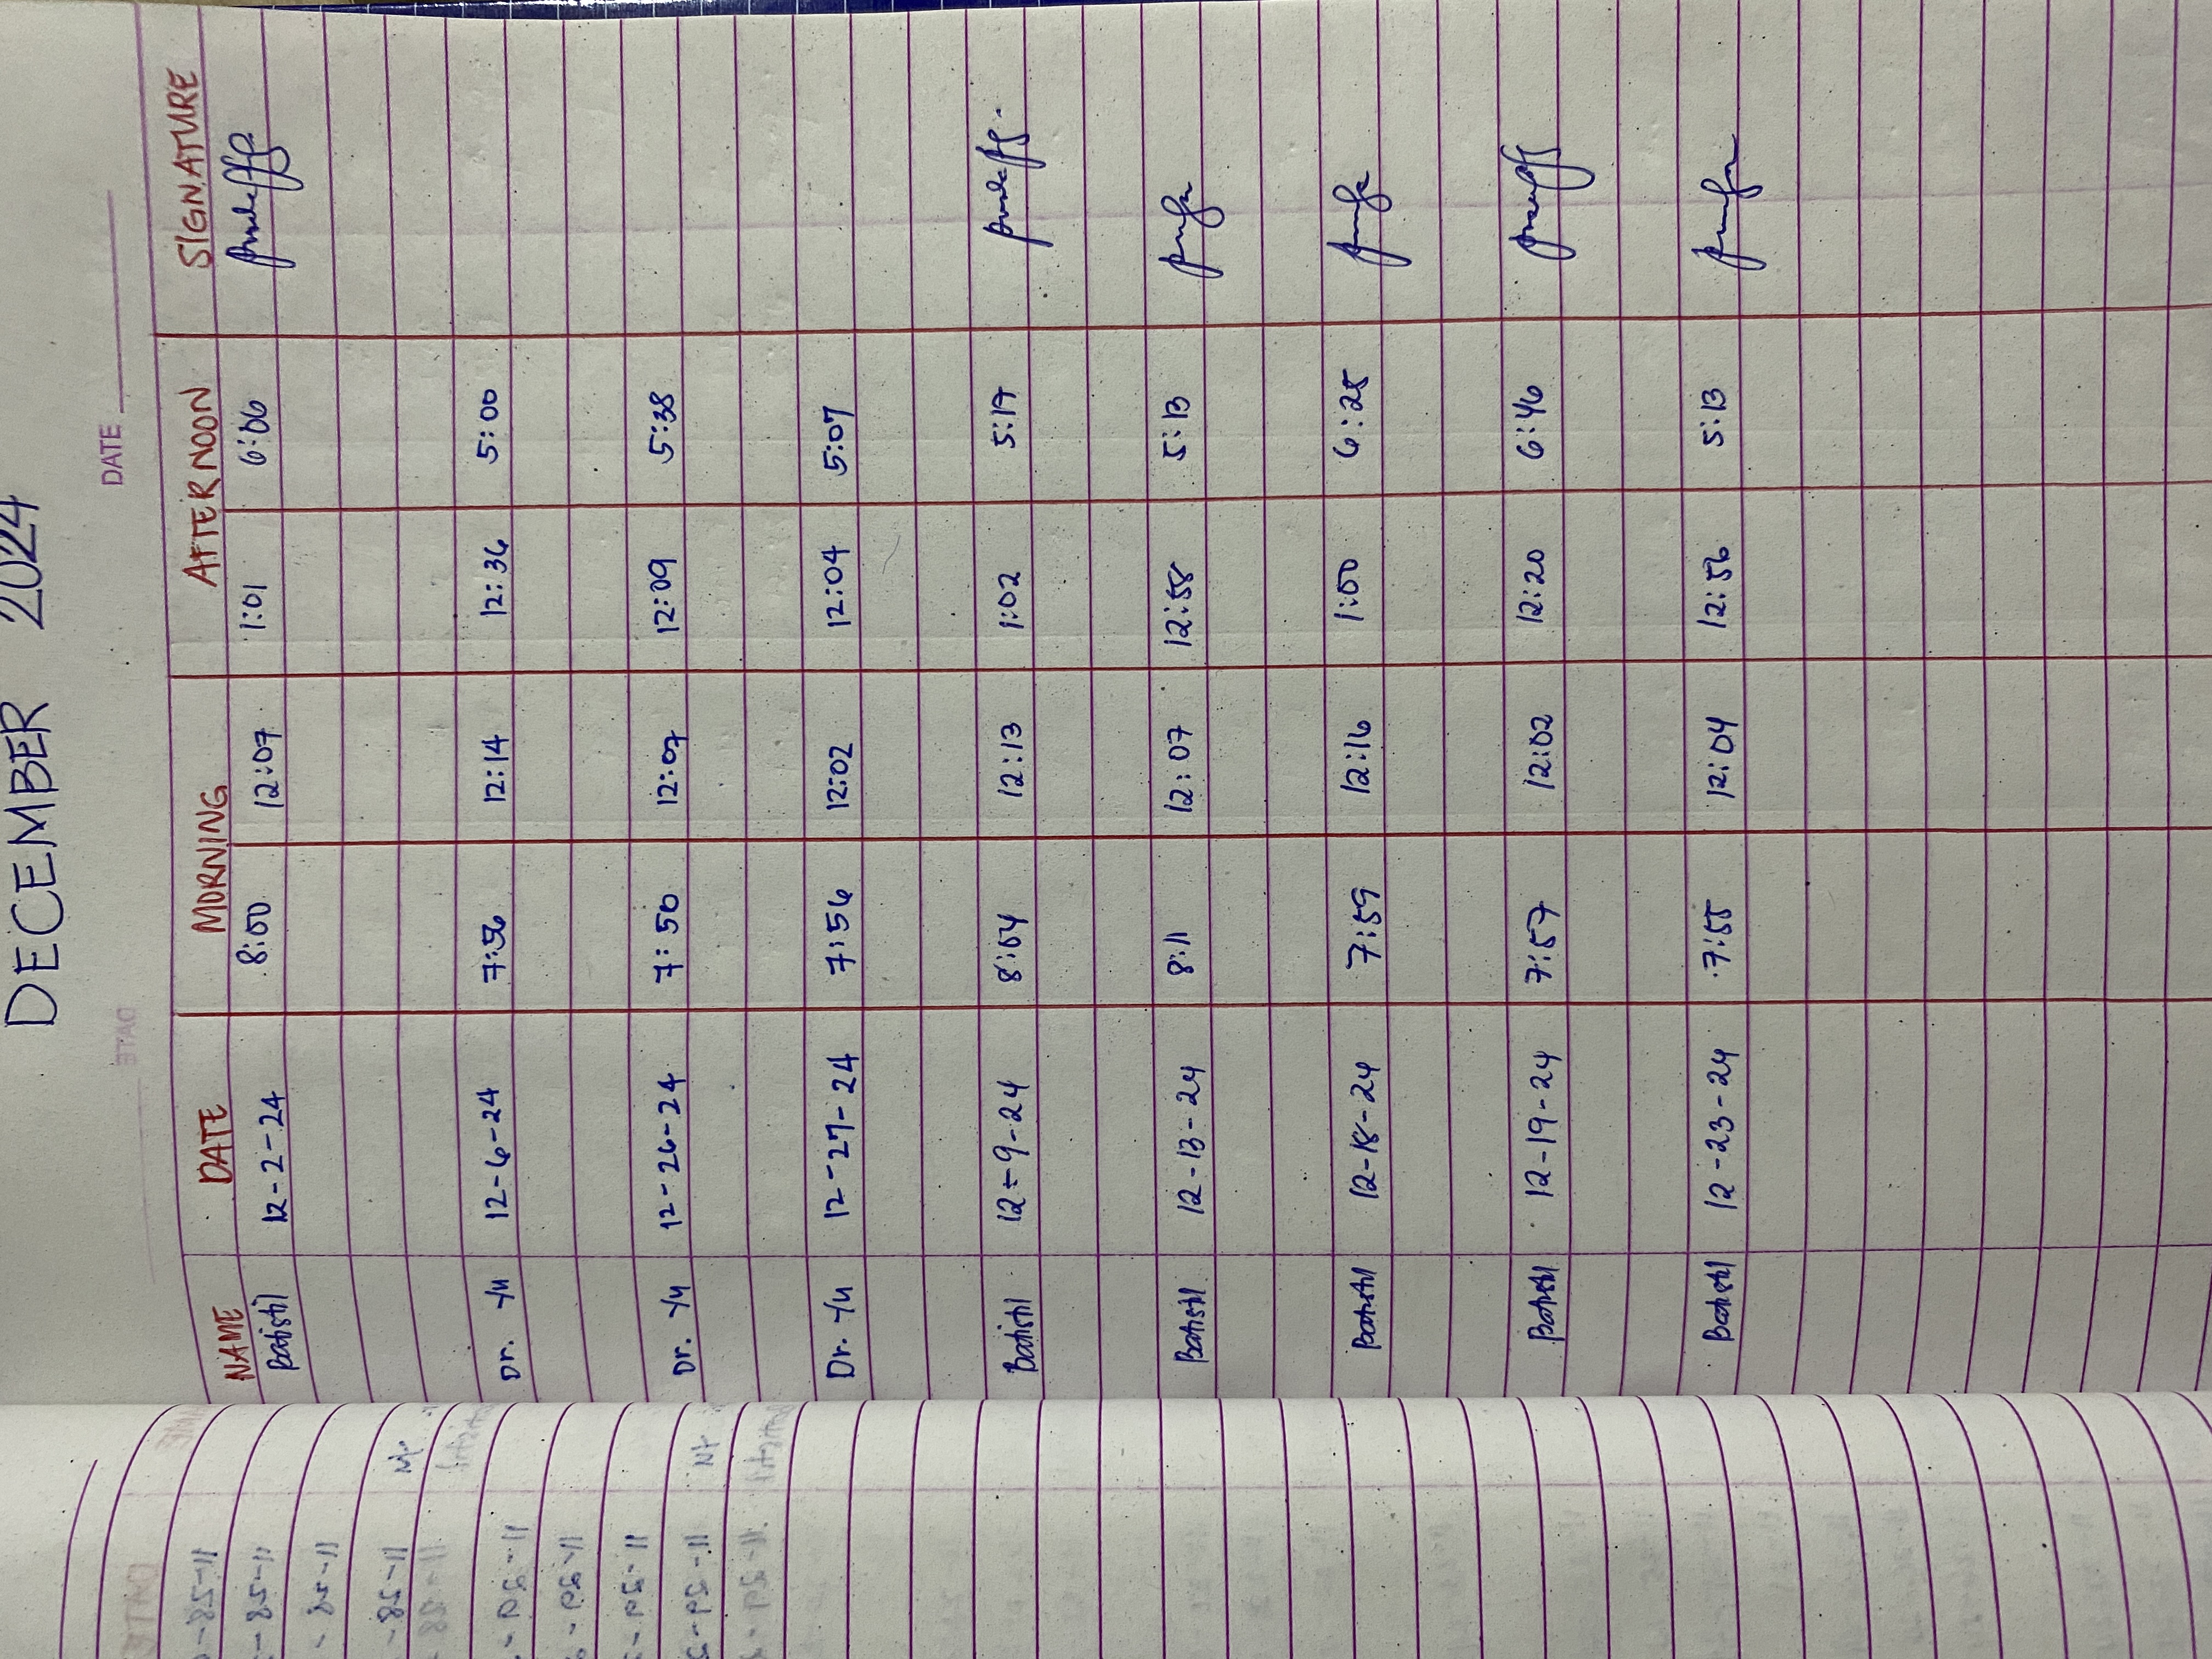 DECEMBER 2024
DATE
NAME DATE MORNING AFTERNOON SIGNATURE
Batistil 12-2-24 8:00 12:07 1:01 6:06
Dr. Yu 12-6-24 7:56 12:14 12:36 5:00
Dr. Yu 12-26-24 7:50 12:07 12:09 5:38
Dr. Yu 12-27-24 7:56 12:02 12:04 5:07
Batistil 12-9-24 8:04 12:13 1:02 5:17
Batistil 12-13-24 8:11 12:07 12:58 5:13
Batistil 12-18-24 7:59 12:16 1:00 6:28
Batistil 12-19-24 7:57 12:02 12:20 6:46
Batistil 12-23-24 7:55 12:04 12:56 5:13